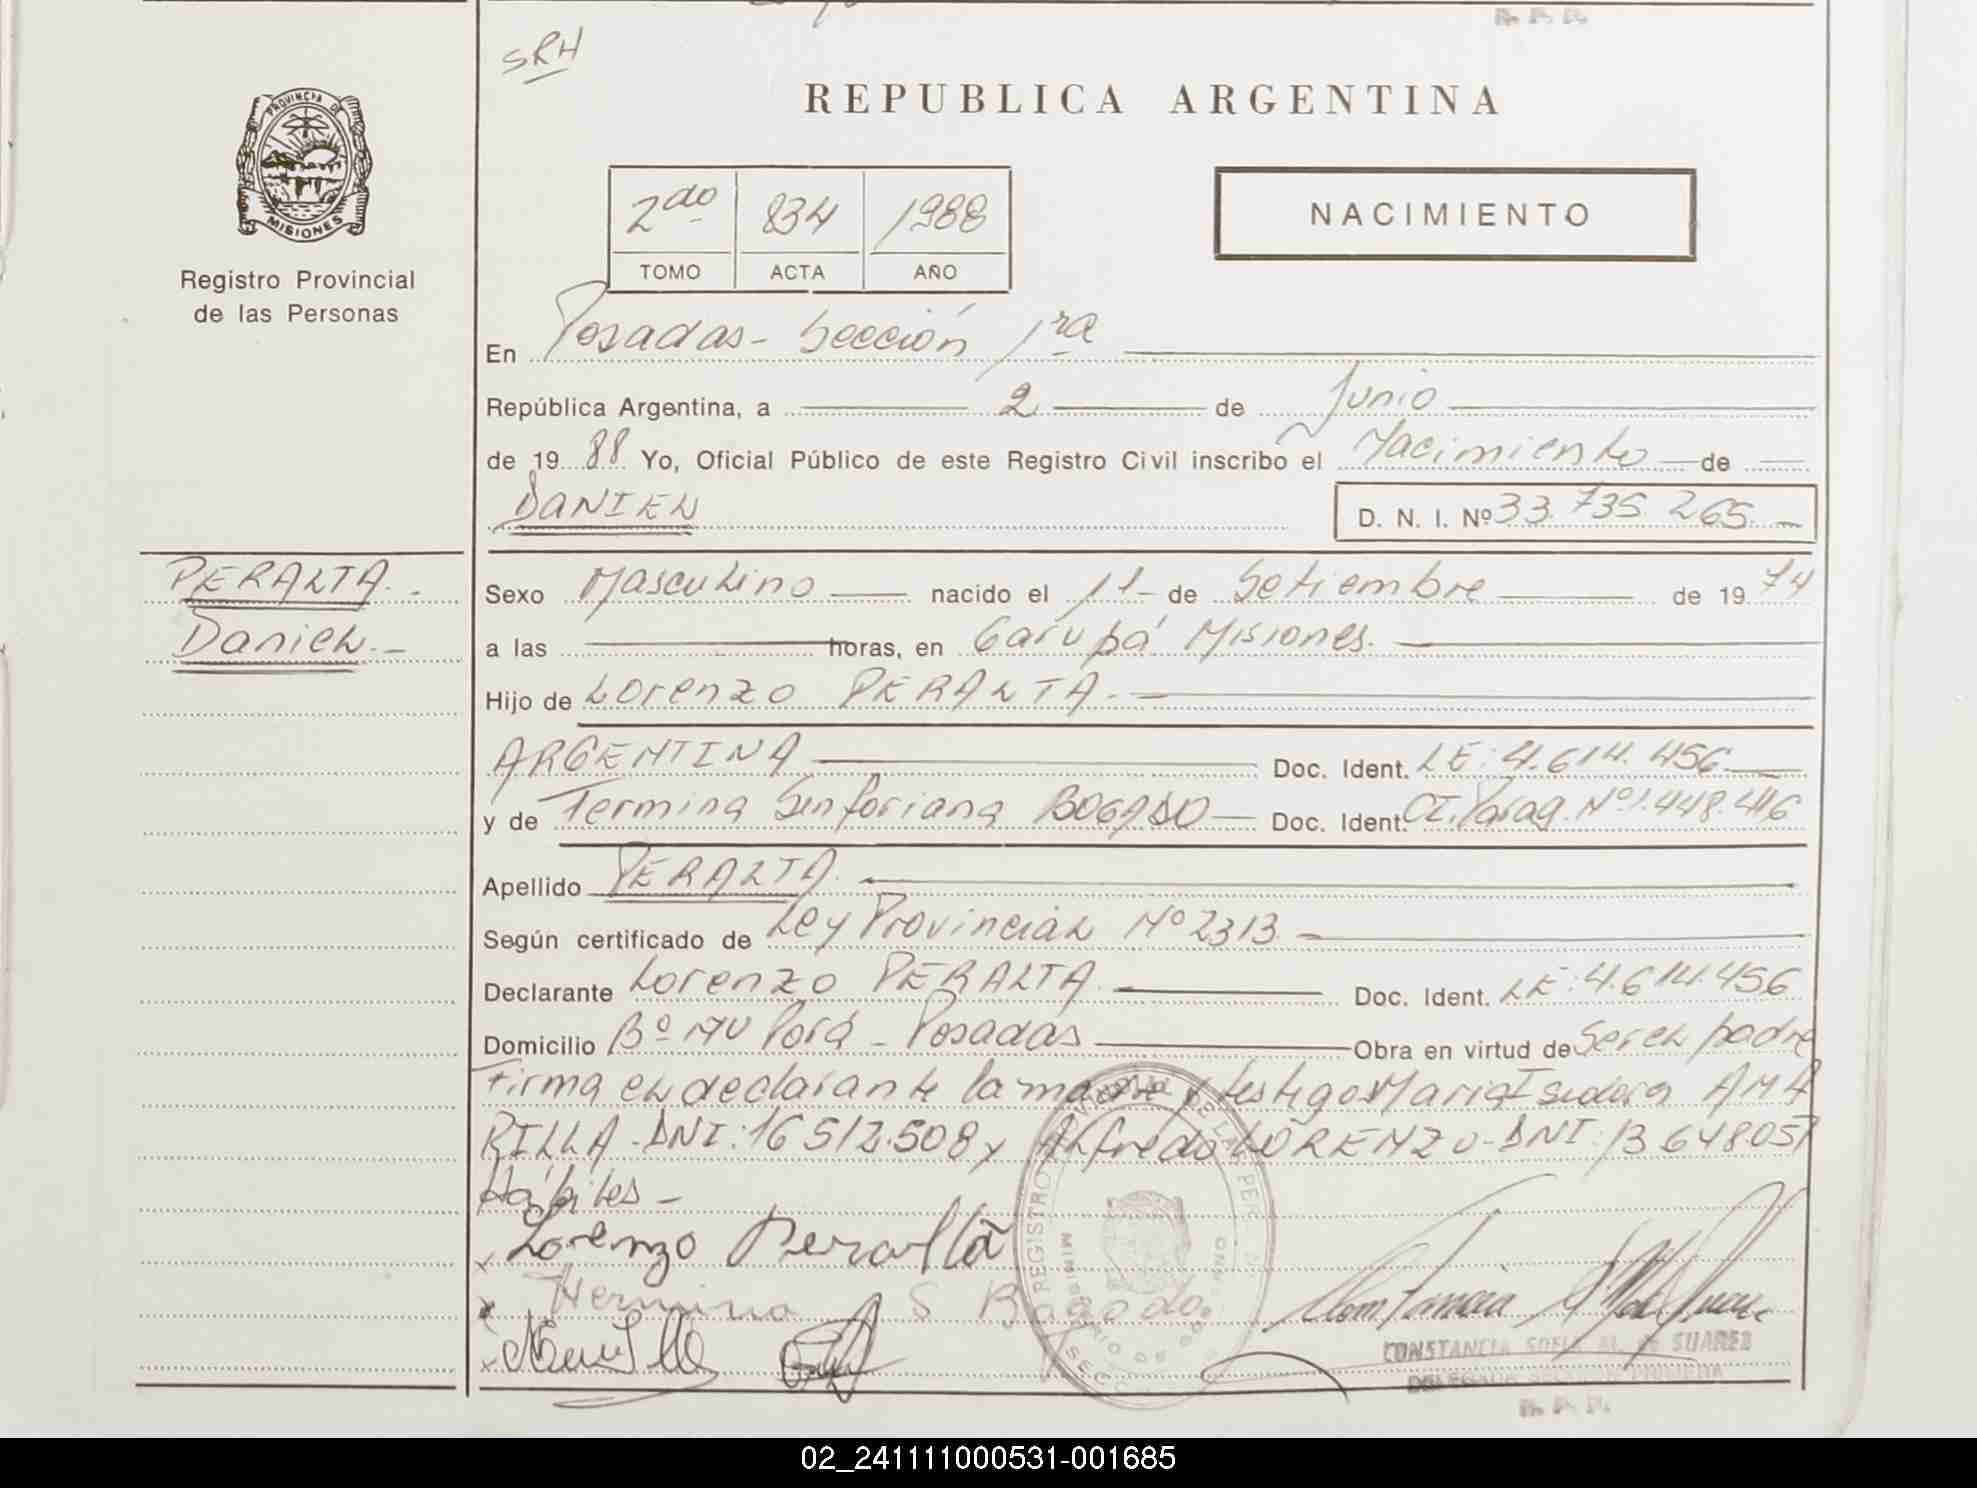 SRH
PROVINCIA DE
MISIONES
Registro Provincial
de las Personas
REPUBLICA ARGENTINA
2do 834 1988
TOMO ACTA AÑO
NACIMIENTO
En Posadas - Sección 1ra
República Argentina, a 2 de Junio
de 1988 Yo, Oficial Público de este Registro Civil inscribo el Nacimiento de
DANIEL
D. N. I. Nº 33.735.265.-
PERALTA.
Daniel.-
Sexo Masculino nacido el 11 de Setiembre de 1974
a las horas, en Garupá Misiones.
Hijo de Lorenzo PERALTA.-
ARGENTINA Doc. Ident. LE: 4.614.456.
y de Termina Sinforiana BOGADO Doc. Ident. CI. Parag. Nº 1.448.416
Apellido PERALTA.
Según certificado de Ley Provincial Nº 2313.-
Declarante Lorenzo PERALTA. Doc. Ident. LE: 4.614.456
Domicilio Bº Ñu Porá - Posadas Obra en virtud de Ser el padre
Firma el declarante la madre y testigos Maria Isidora AMA
RILLA - DNI: 16.512.508 y Alfredo LORENZO - DNI: 13.648.057
Hábiles -
Lorenzo Peralta
Hermina S Bogado
CONSTANCIA SUAREZ
DELEGADA SECCION PRIMERA
R. P. P.
02_241111000531-001685